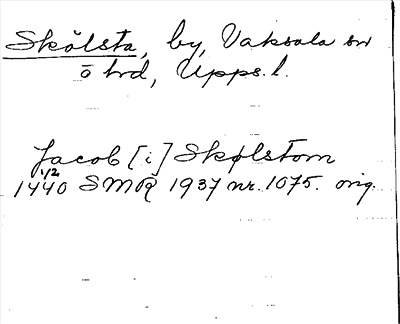 Skölsta, by, Vaksala sn
ö hd, Upps.l.
Jacob [i] Skølstom
1/2 1440 SMR 1937 nr. 1075. orig.